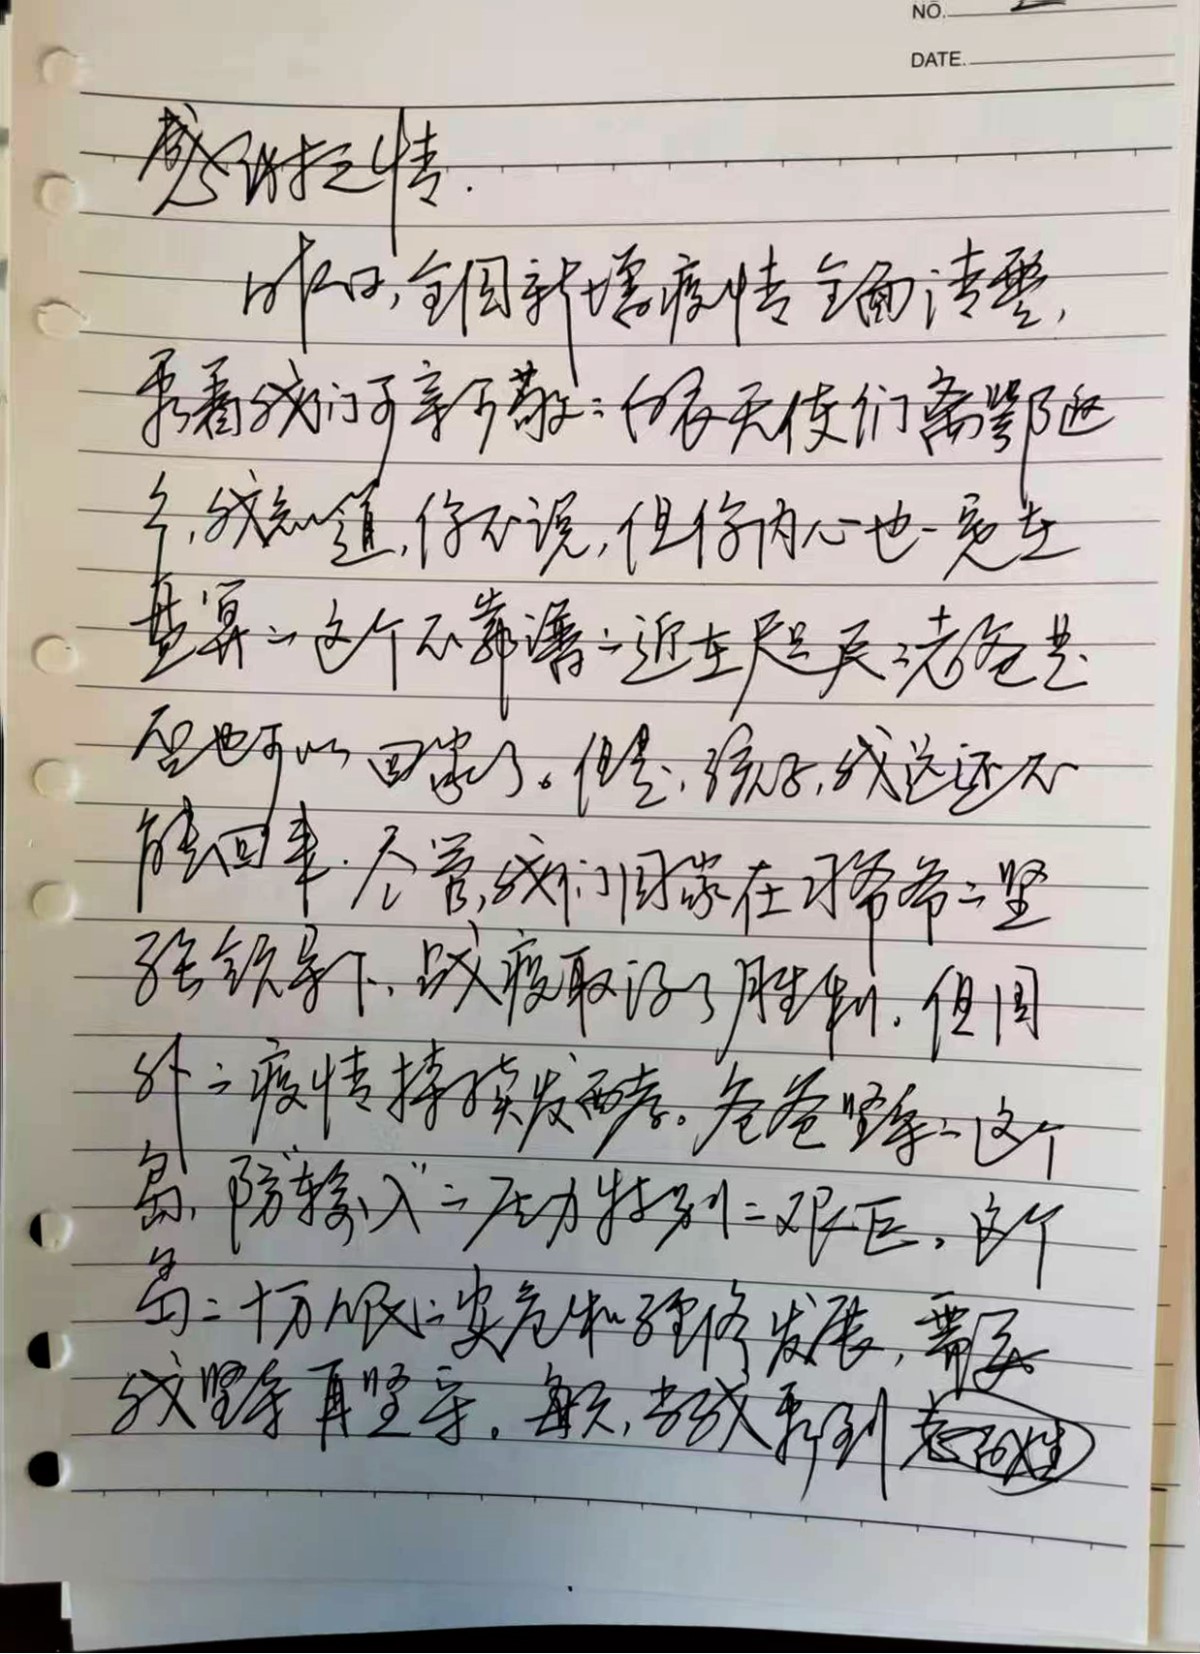 NO.
DATE.
感谢疫情.
昨日,全国新增疫情全面清零,
看着我们可亲可敬的白衣天使们离鄂返
乡,我知道,你不说,但你内心也一定在
盘算的这个不靠谱的近在咫尺的老爸是
否也可以回家了。但是,孩子,我这还不
能回来.尽管,我们国家在习爷爷的坚
强领导下,战疫取得了胜利.但国
外的疫情持续发酵。爸爸坚守的这个
岛,防"输入"的压力特别的艰巨,这个
岛的十万人民的安危和经济发展,需要
我坚守再坚守.每天,当我看到老百姓